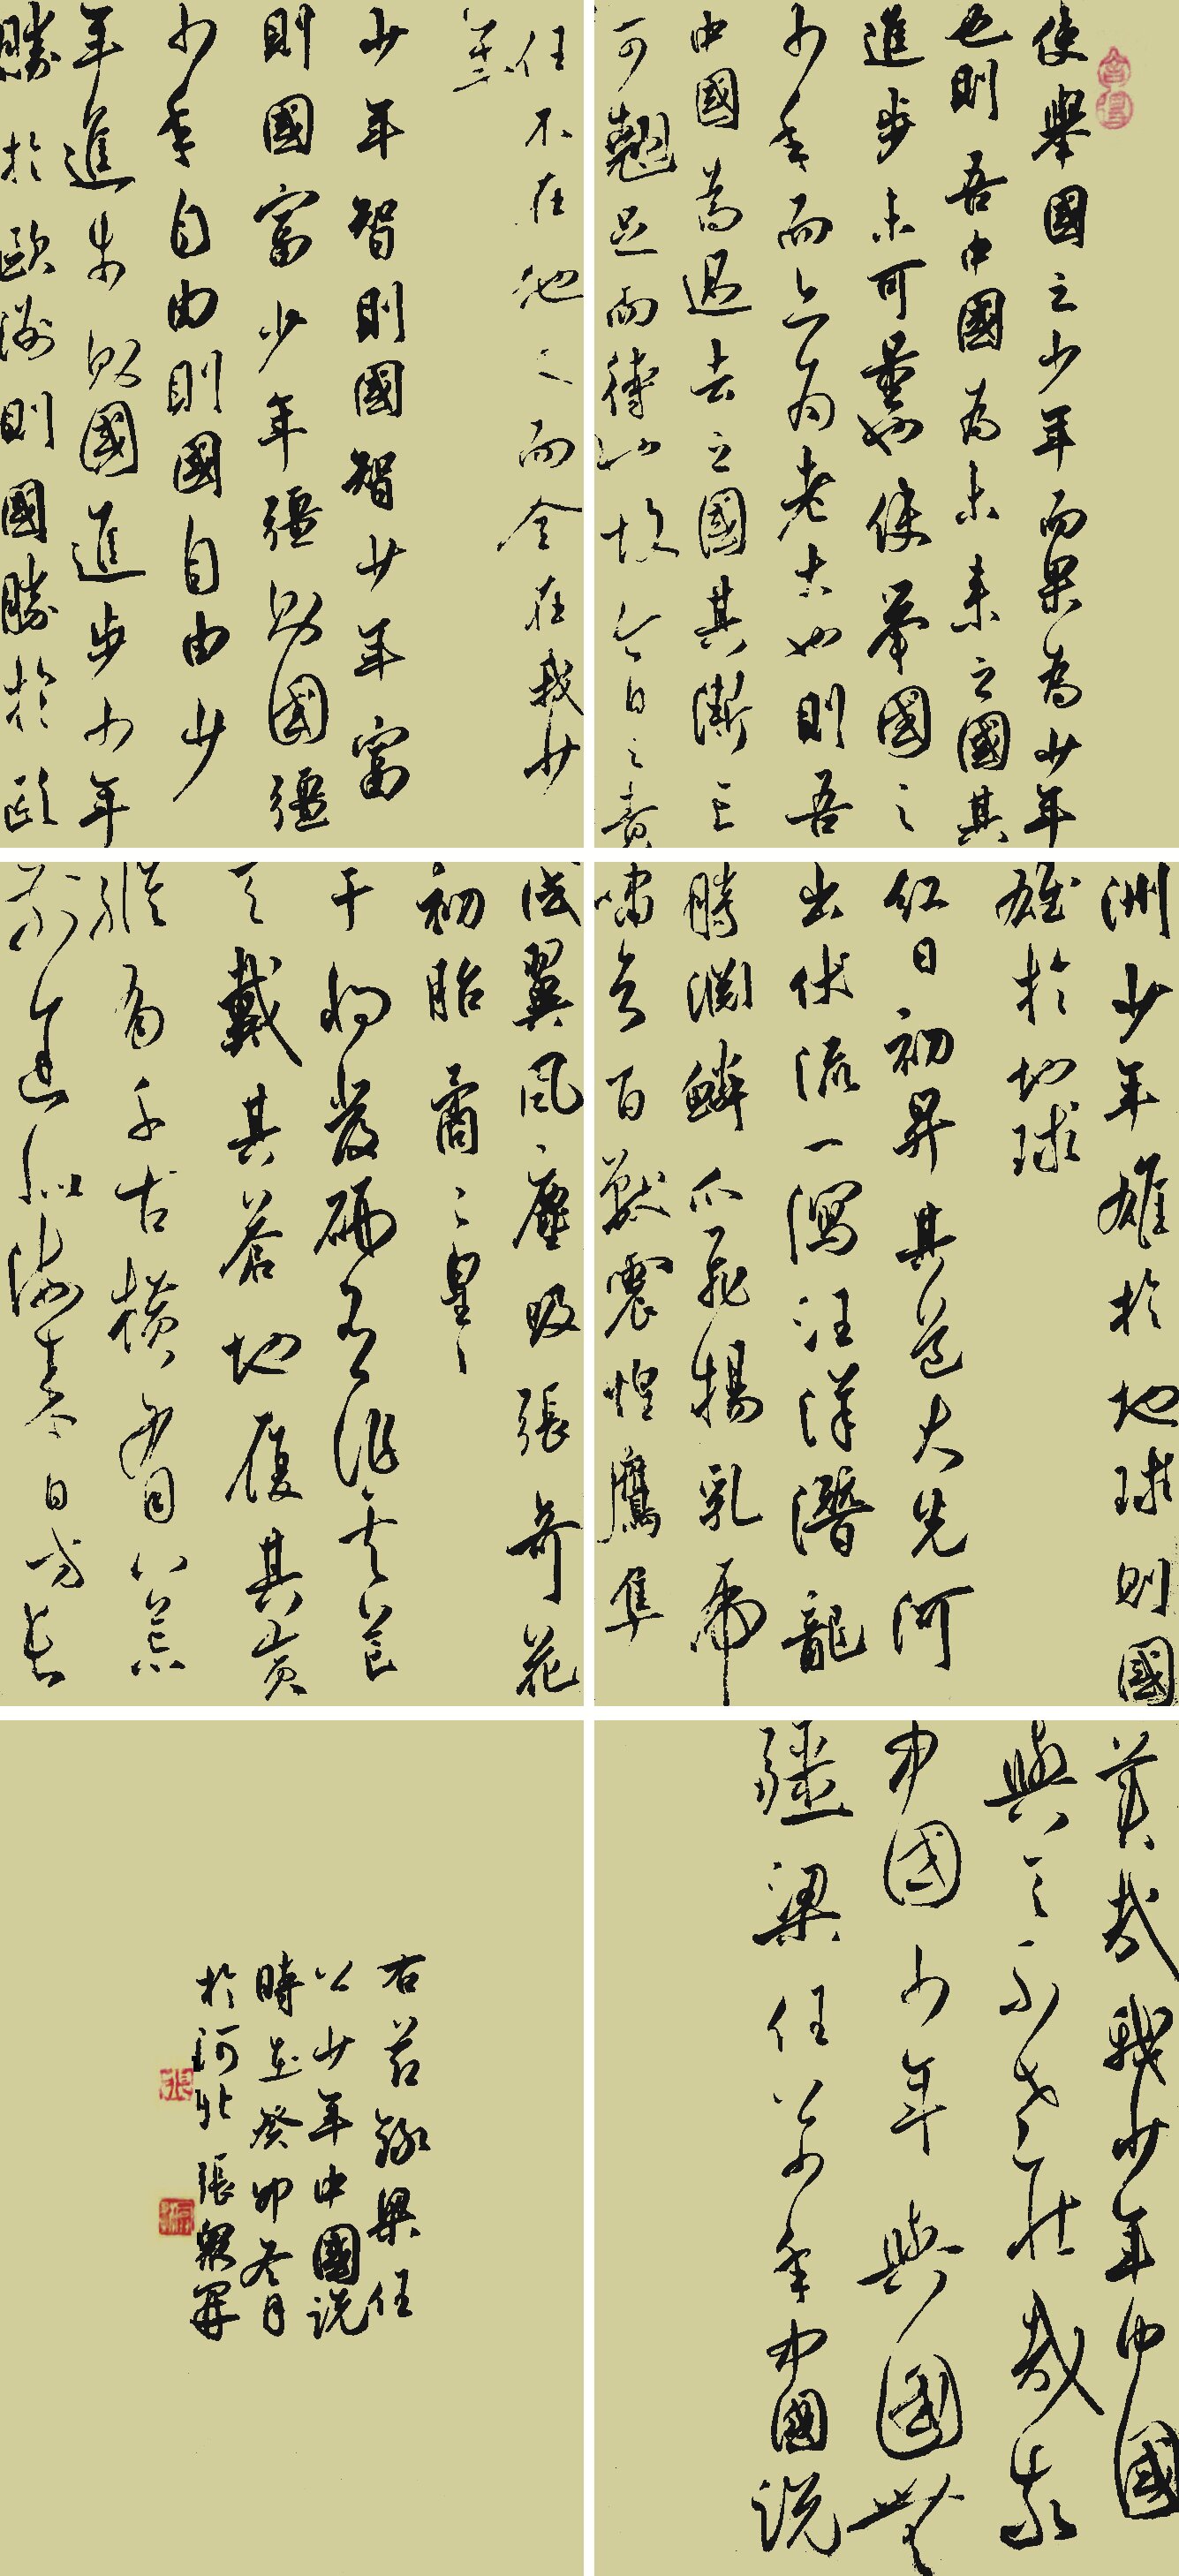 使舉國之少年而果為少年
也則吾中國為未來之國其
進步未可量也使舉國之
少年而亦為老大也則吾
中國為過去之國其澌亡
可翹足而待也故今日之責
任不在他人而全在我少
年
少年智則國智少年富
則國富少年彊則國彊
少年自由則國自由少
年進步則國進步少年
勝於歐洲則國勝於歐
洲少年雄於地球則國
雄於地球
紅日初昇其道大光河
出伏流一瀉汪洋潛龍
騰淵鱗爪飛揚乳虎
嘯谷百獸震惶鷹隼
試翼風塵吸張奇花
初胎矞々皇々
干將發硎有作其芒
天戴其蒼地履其黃
縱有千古橫有八荒
前途似海來日方長
美哉我少年中國
與天不老壯哉我
中國少年與國無
疆梁任公少年中國說
右節錄梁任
公少年中國說
時在癸卯冬月
於河北張